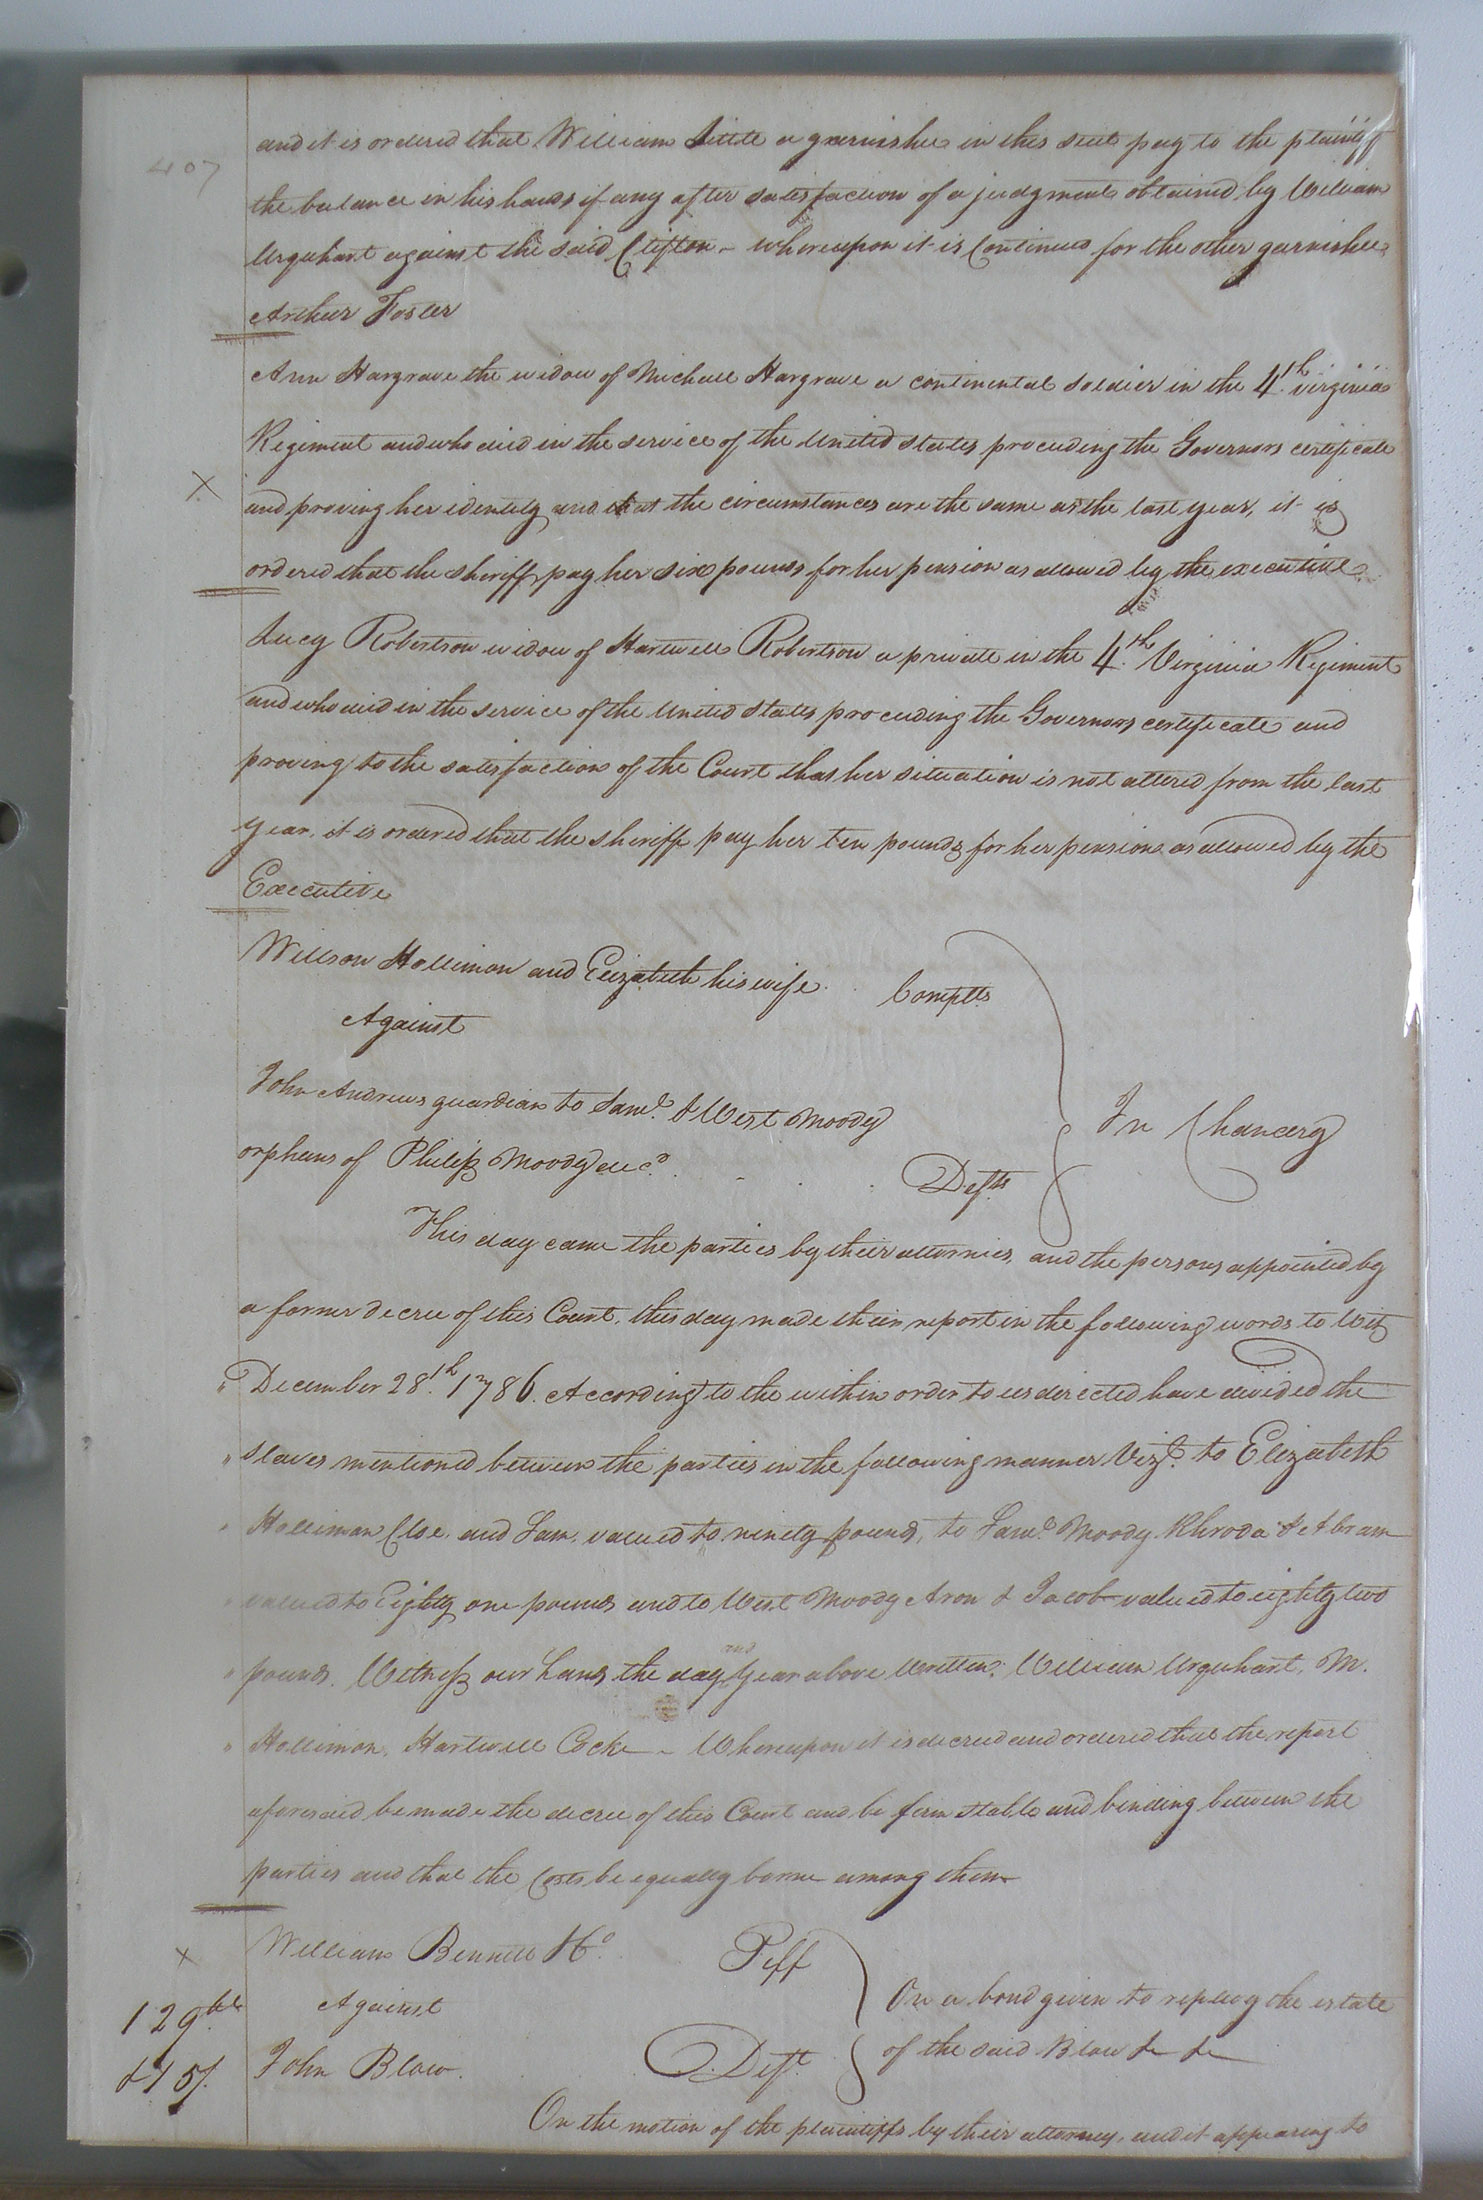 407
and it is ordered that William Little a garnishee in this suit pay to the plaintiff
the balance in his hands if any after satisfaction of a judgment obtained by William
Urquhart against the said Clifton - whereupon it is Continued for the other garnishee
Arthur Foster
Ann Hargrave the widow of Michael Hargrave a continental soldier in the 4th. virginia
Regiment and who died in the service of the United States proceeding the Governors certificate
X
and proving her identity and that the circumstances are the same as the last year, it is
ordered that the sheriff pay her six pounds for her pension as allowed by the executive
Lucy Robertson widow of Hartwell Robertson a private in the 4.th Virginia Regiment
and who died in the service of the United States proceeding the Governors certificate and
proving to the satisfaction of the Court that her situation is not altered from the last
year, it is ordered that the sheriff pay her ten pounds for her pension as allowed by the
Executive
Willson Holliman and Elizabeth his wife Complts
Against
In Chancery
John Andrews guardian to Saml. & West Moody
orphans of Philip Moody decd. Defts
This day came the parties by their attornies, and the persons appointed by
a former decree of this Court, this day made their report in the following words to Wit,
" December 28.th 1786. According to the within order to us directed have divided the
" slaves mentioned between the parties in the following manner Vizt. to Elizabeth
" Holliman Cloe, and Sam, valued to ninety pounds, to Saml. Moody Rhroda & Abram
" valued to Eighty one pounds and to West Moody Aron & Jacob valued to eighty two
and
" pounds. Witness our hands the day year above Written. William Urquhart, M.
" Holliman, Hartwell Cocke - Whereupon it is decreed and ordered that the report
aforesaid be made the decree of this Court and be firm stable and binding between the
parties and that the Costs be equally borne among them
X
William Bennett & Co. Plff
Against
On a bond given to replevy the estate
129
John Blow. Deft.
of the said Blow &c &c
& 15/.
On the motion of the plaintiffs by their attorney, and it appearing to